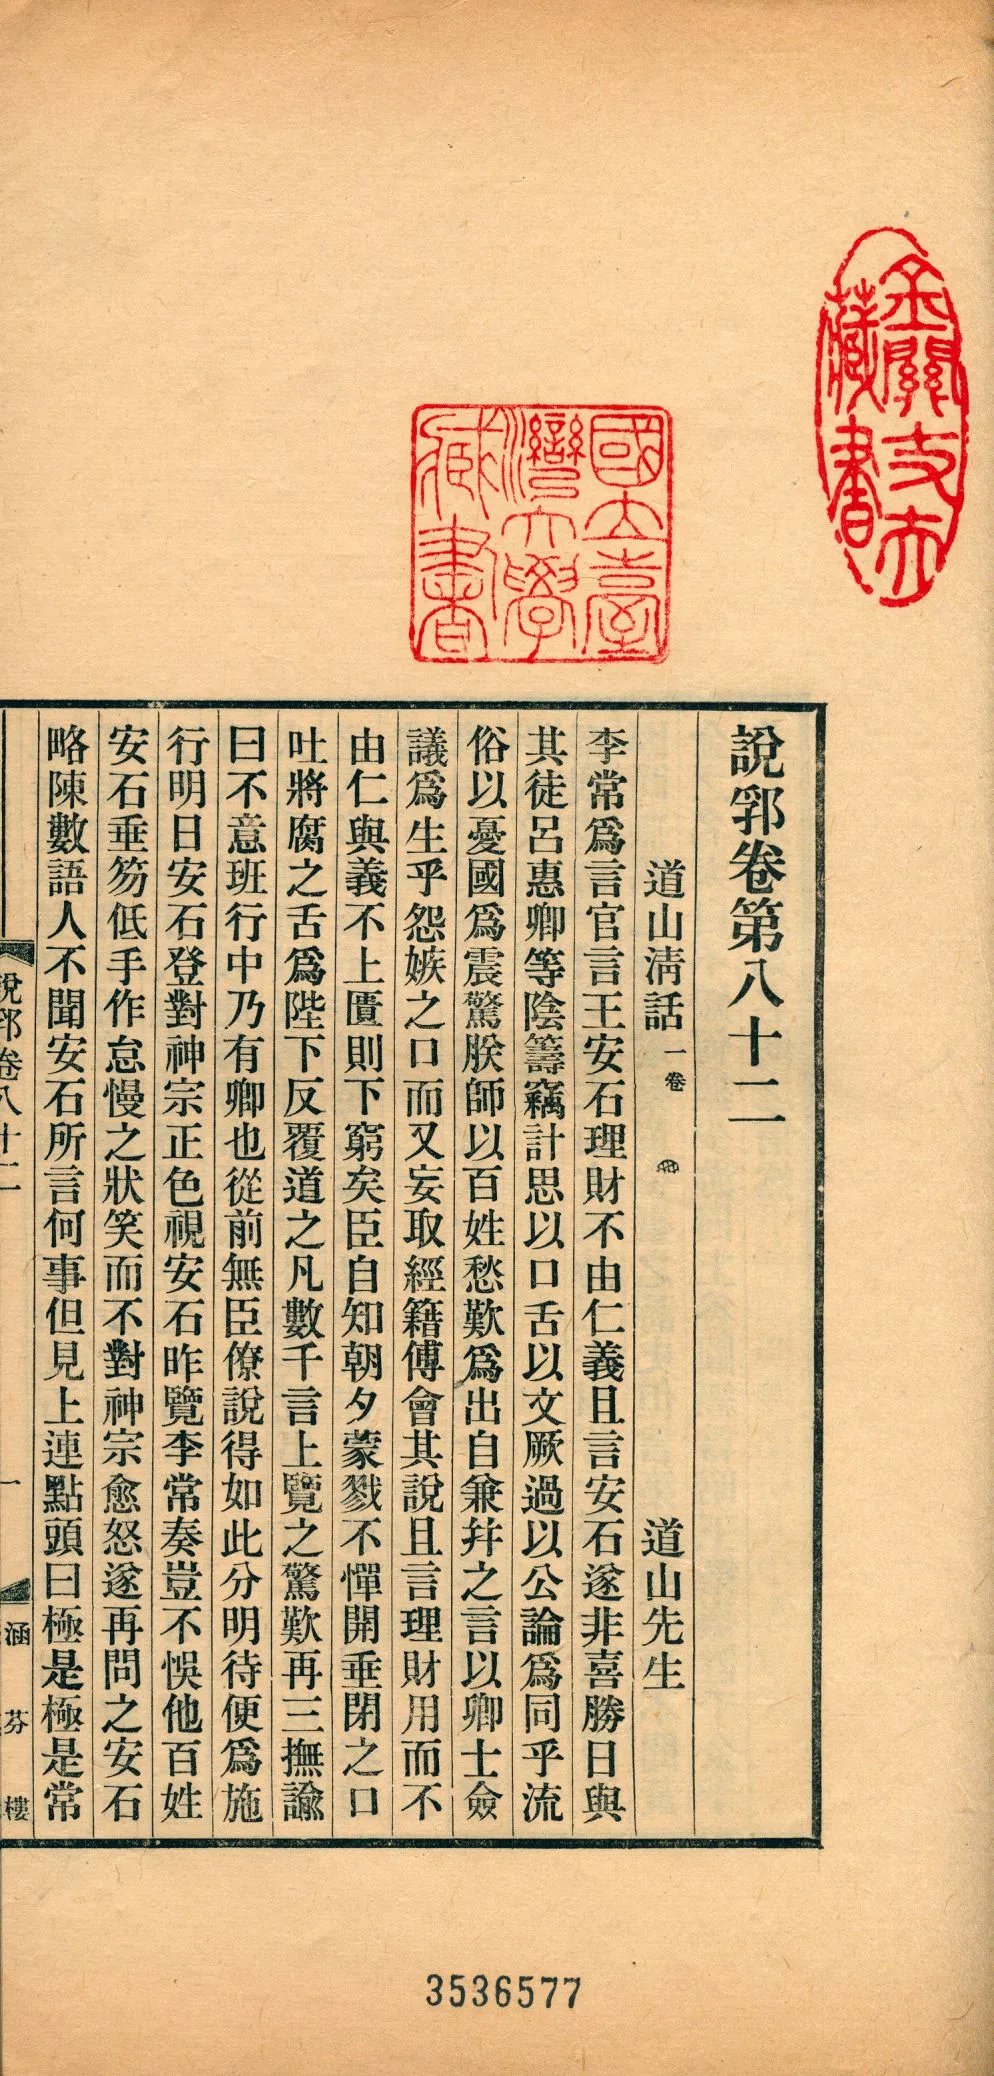 說郛卷第八十二
道山淸話 一卷 道山先生
李常爲言官言王安石理財不由仁義且言安石遂非喜勝日與
其徒呂惠卿等陰籌竊計思以口舌以文厥過以公論爲同乎流
俗以憂國爲震驚朕師以百姓愁歎爲出自兼幷之言以卿士僉
議爲生乎怨嫉之口而又妄取經籍傅會其說且言理財用而不
由仁與義不上匱則下窮矣臣自知朝夕蒙戮不憚開垂閉之口
吐將腐之舌爲陛下反覆道之凡數千言上覽之驚歎再三撫諭
曰不意班行中乃有卿也從前無臣僚說得如此分明待便爲施
行明日安石登對神宗正色視安石昨覽李常奏豈不悞他百姓
安石垂笏低手作怠慢之狀笑而不對神宗愈怒遂再問之安石
略陳數語人不聞安石所言何事但見上連點頭曰極是極是常
說郛卷八十二 一 涵芬樓
國立臺
灣大學
藏書
金關丈夫
藏書
3536577